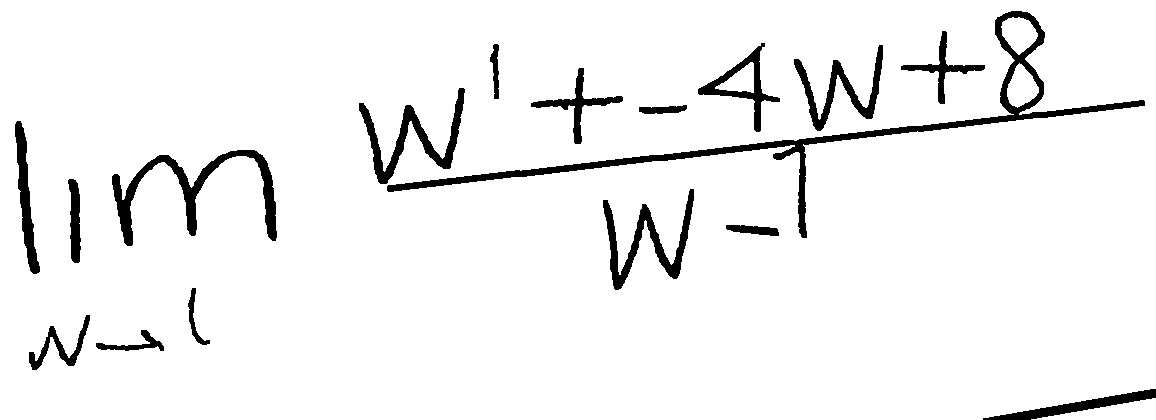 \lim_{w \to 1} \frac{w^1 + -4w + 8}{w - 1}